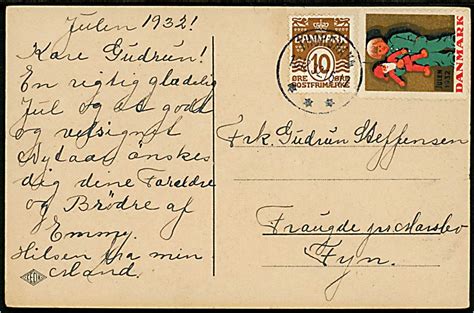 Julen 1932!
Kære Gudrun!
En rigtig glædelig
Jul og et godt
og velsignet
Nytaar ønskes
dig dine Foreldre
og Brødre af
Emmy.
Hilsen fra min
Mand.
DANMARK
10
ØRE
POSTFRIMÆRKE
JULEN
1932
DANMARK
Frk. Gudrun Steffensen
Fraugde pr. Marslev
Fyn.